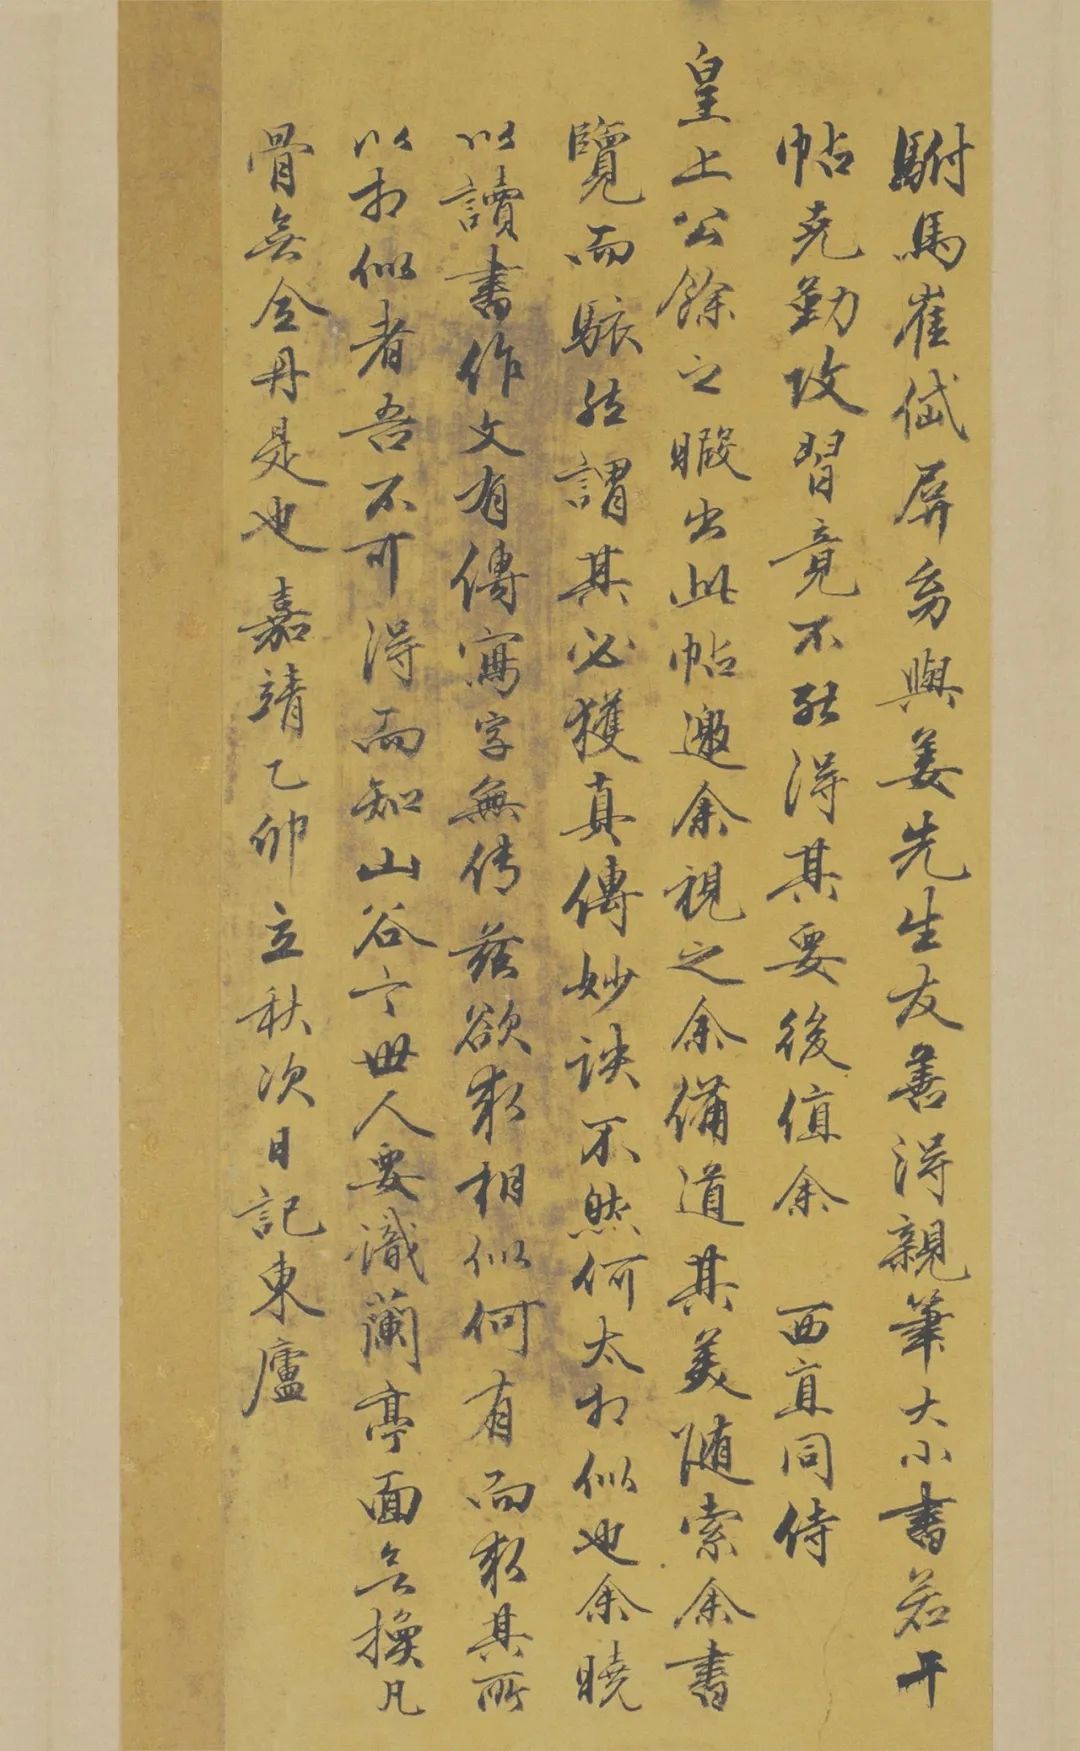 駙馬崔岱屏易與姜先生友善得親筆大小書若干
帖克勤攻習竟不能得其要後值余 西直同侍
皇上公餘之暇出此帖邀余視之余備道其美隨索余書
覽而駭然謂其必獲真傳妙訣不然何太相似也余曉
以讀書作文有傳寫字無傳茲欲求相似何有而求其所
以相似者吾不可得而知山谷云世人要識蘭亭面無換凡
骨無金丹是也 嘉靖乙卯立秋次日記東廬